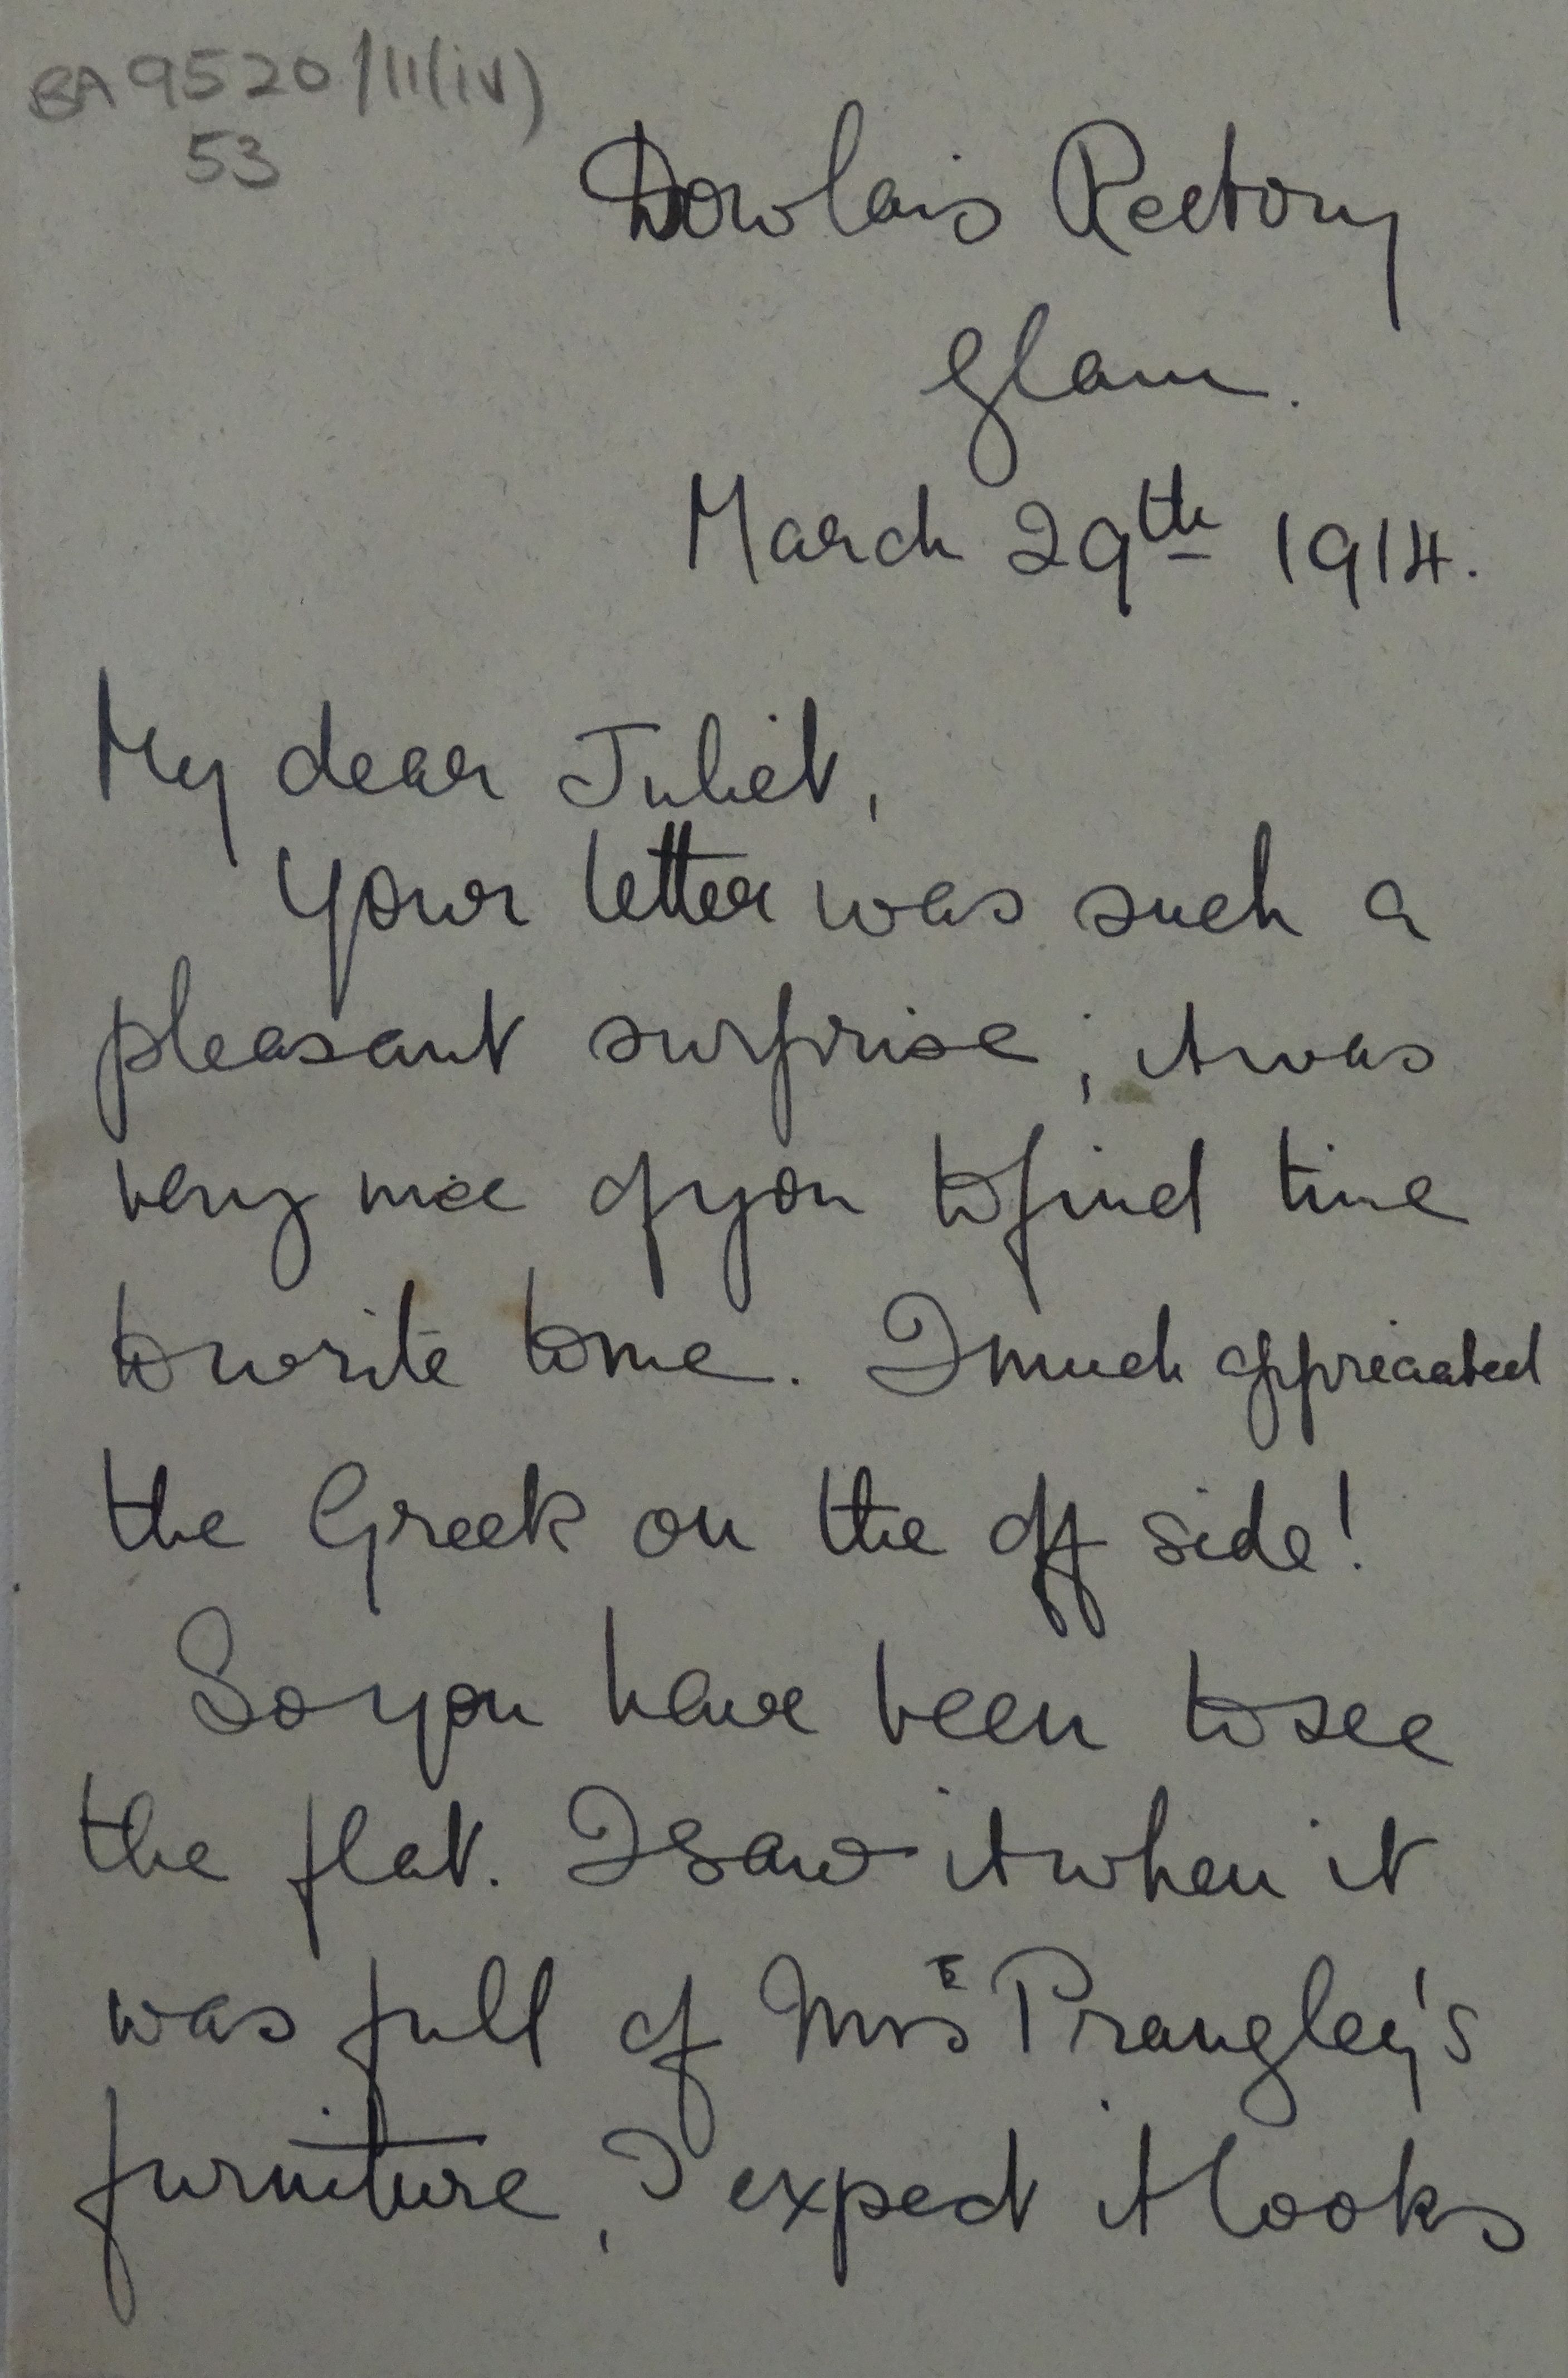 BA 9520/11(iv)
53
Dowlais Rectory
Glam.
March 29th 1914.
My dear Juliet,
Your letter was such a
pleasant surprise; it was
very nice of you to find time
to write to me. I much appreciated
the Greek on the off side!
So you have been to see
the flat. I saw it when it
was full of Mrs Prangley's
furniture, I expect it looks